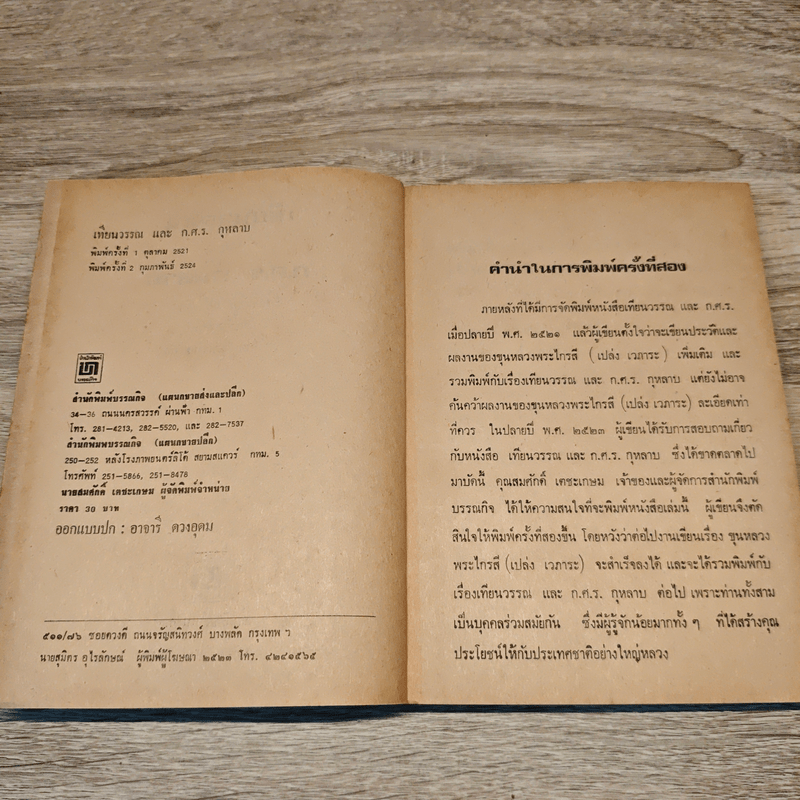 เทียนวรรณ และ ก.ศ.ร. กุหลาบ
พิมพ์ครั้งที่ 1 ตุลาคม 2521
พิมพ์ครั้งที่ 2 กุมภาพันธ์ 2524
สำนักพิมพ์บรรณกิจ (แผนกขายส่งและปลีก)
34-36 ถนนนครสวรรค์ ผ่านฟ้า กทม. 1
โทร. 281-4213, 282-5520, และ 282-7537
สำนักพิมพบรรณกิจ (แผนกขายปลีก)
250-252 หลังโรงภาพยนตร์ลิโด้ สยามสแควร์ กทม. 5
โทรศัพท์ 251-5866, 251-8478
นายสมศักดิ์ เตชะเกษม ผู้จัดพิมพ์จำหน่าย
ราคา 30 บาท
ออกแบบปก : อาจารี ดวงอุดม
๕๑๑/๗๖ ซอยดวงดี ถนนจรัญสนิทวงศ์ บางพลัด กรุงเทพ ฯ
นายสุมิตร อุไรลักษณ์ ผู้พิมพ์ผู้โฆษณา ๒๕๒๓ โทร. ๔๒๔๑๕๖๕
คำนำในการพิมพ์ครั้งที่สอง
ภายหลังที่ได้มีการจัดพิมพ์หนังสือเทียนวรรณ และ ก.ศ.ร.
เมื่อปลายปี พ.ศ. ๒๕๒๑ แล้วผู้เขียนตั้งใจว่าจะเขียนประวัติและ
ผลงานของขุนหลวงพระไกรสี (เปล่ง เวภาระ) เพิ่มเติม และ
รวมพิมพ์กับเรื่องเทียนวรรณ และ ก.ศ.ร. กุหลาบ แต่ยังไม่อาจ
ค้นคว้าผลงานของขุนหลวงพระไกรสี (เปล่ง เวภาระ) ละเอียดเท่า
ที่ควร ในปลายปี พ.ศ. ๒๕๒๓ ผู้เขียนได้รับการสอบถามเกี่ยว
กับหนังสือ เทียนวรรณ และ ก.ศ.ร. กุหลาบ ซึ่งได้ขาดตลาดไป
มาบัดนี้ คุณสมศักดิ์ เตชะเกษม เจ้าของและผู้จัดการสำนักพิมพ์
บรรณกิจ ได้ให้ความสนใจที่จะพิมพ์หนังสือเล่มนี้ ผู้เขียนจึงตัด
สินใจให้พิมพ์ครั้งที่สองขึ้น โดยหวังว่าต่อไปงานเขียนเรื่อง ขุนหลวง
พระไกรสี (เปล่ง เวภาระ) จะสำเร็จลงได้ และจะได้รวมพิมพ์กับ
เรื่องเทียนวรรณ และ ก.ศ.ร. กุหลาบ ต่อไป เพราะท่านทั้งสาม
เป็นบุคคลร่วมสมัยกัน ซึ่งมีผู้รู้จักน้อยมากทั้ง ๆ ที่ได้สร้างคุณ
ประโยชน์ให้กับประเทศชาติอย่างใหญ่หลวง